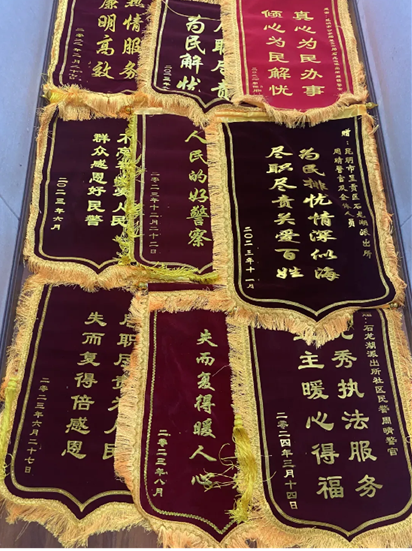 情服务
廉明高效
职尽责
为民解忧
真心为民办事
倾心为民解忧
人民
群众感恩好民警
二〇二三年六月
人民的好警察
二〇二三年十二月二十二日
赠：昆明市呈贡区石龙湖派出所
周晴警官及全体人员
为民排忧情深似海
尽职尽责关爱百姓
二〇二三年十一月
职尽责为人民
失而复得倍感恩
二〇二三年六月二十七日
失而复得暖人心
二〇二三年八月
：石龙湖派出所社区民警 周晴警官
秀执法服务
主暖心得福
二〇二四年三月十四日